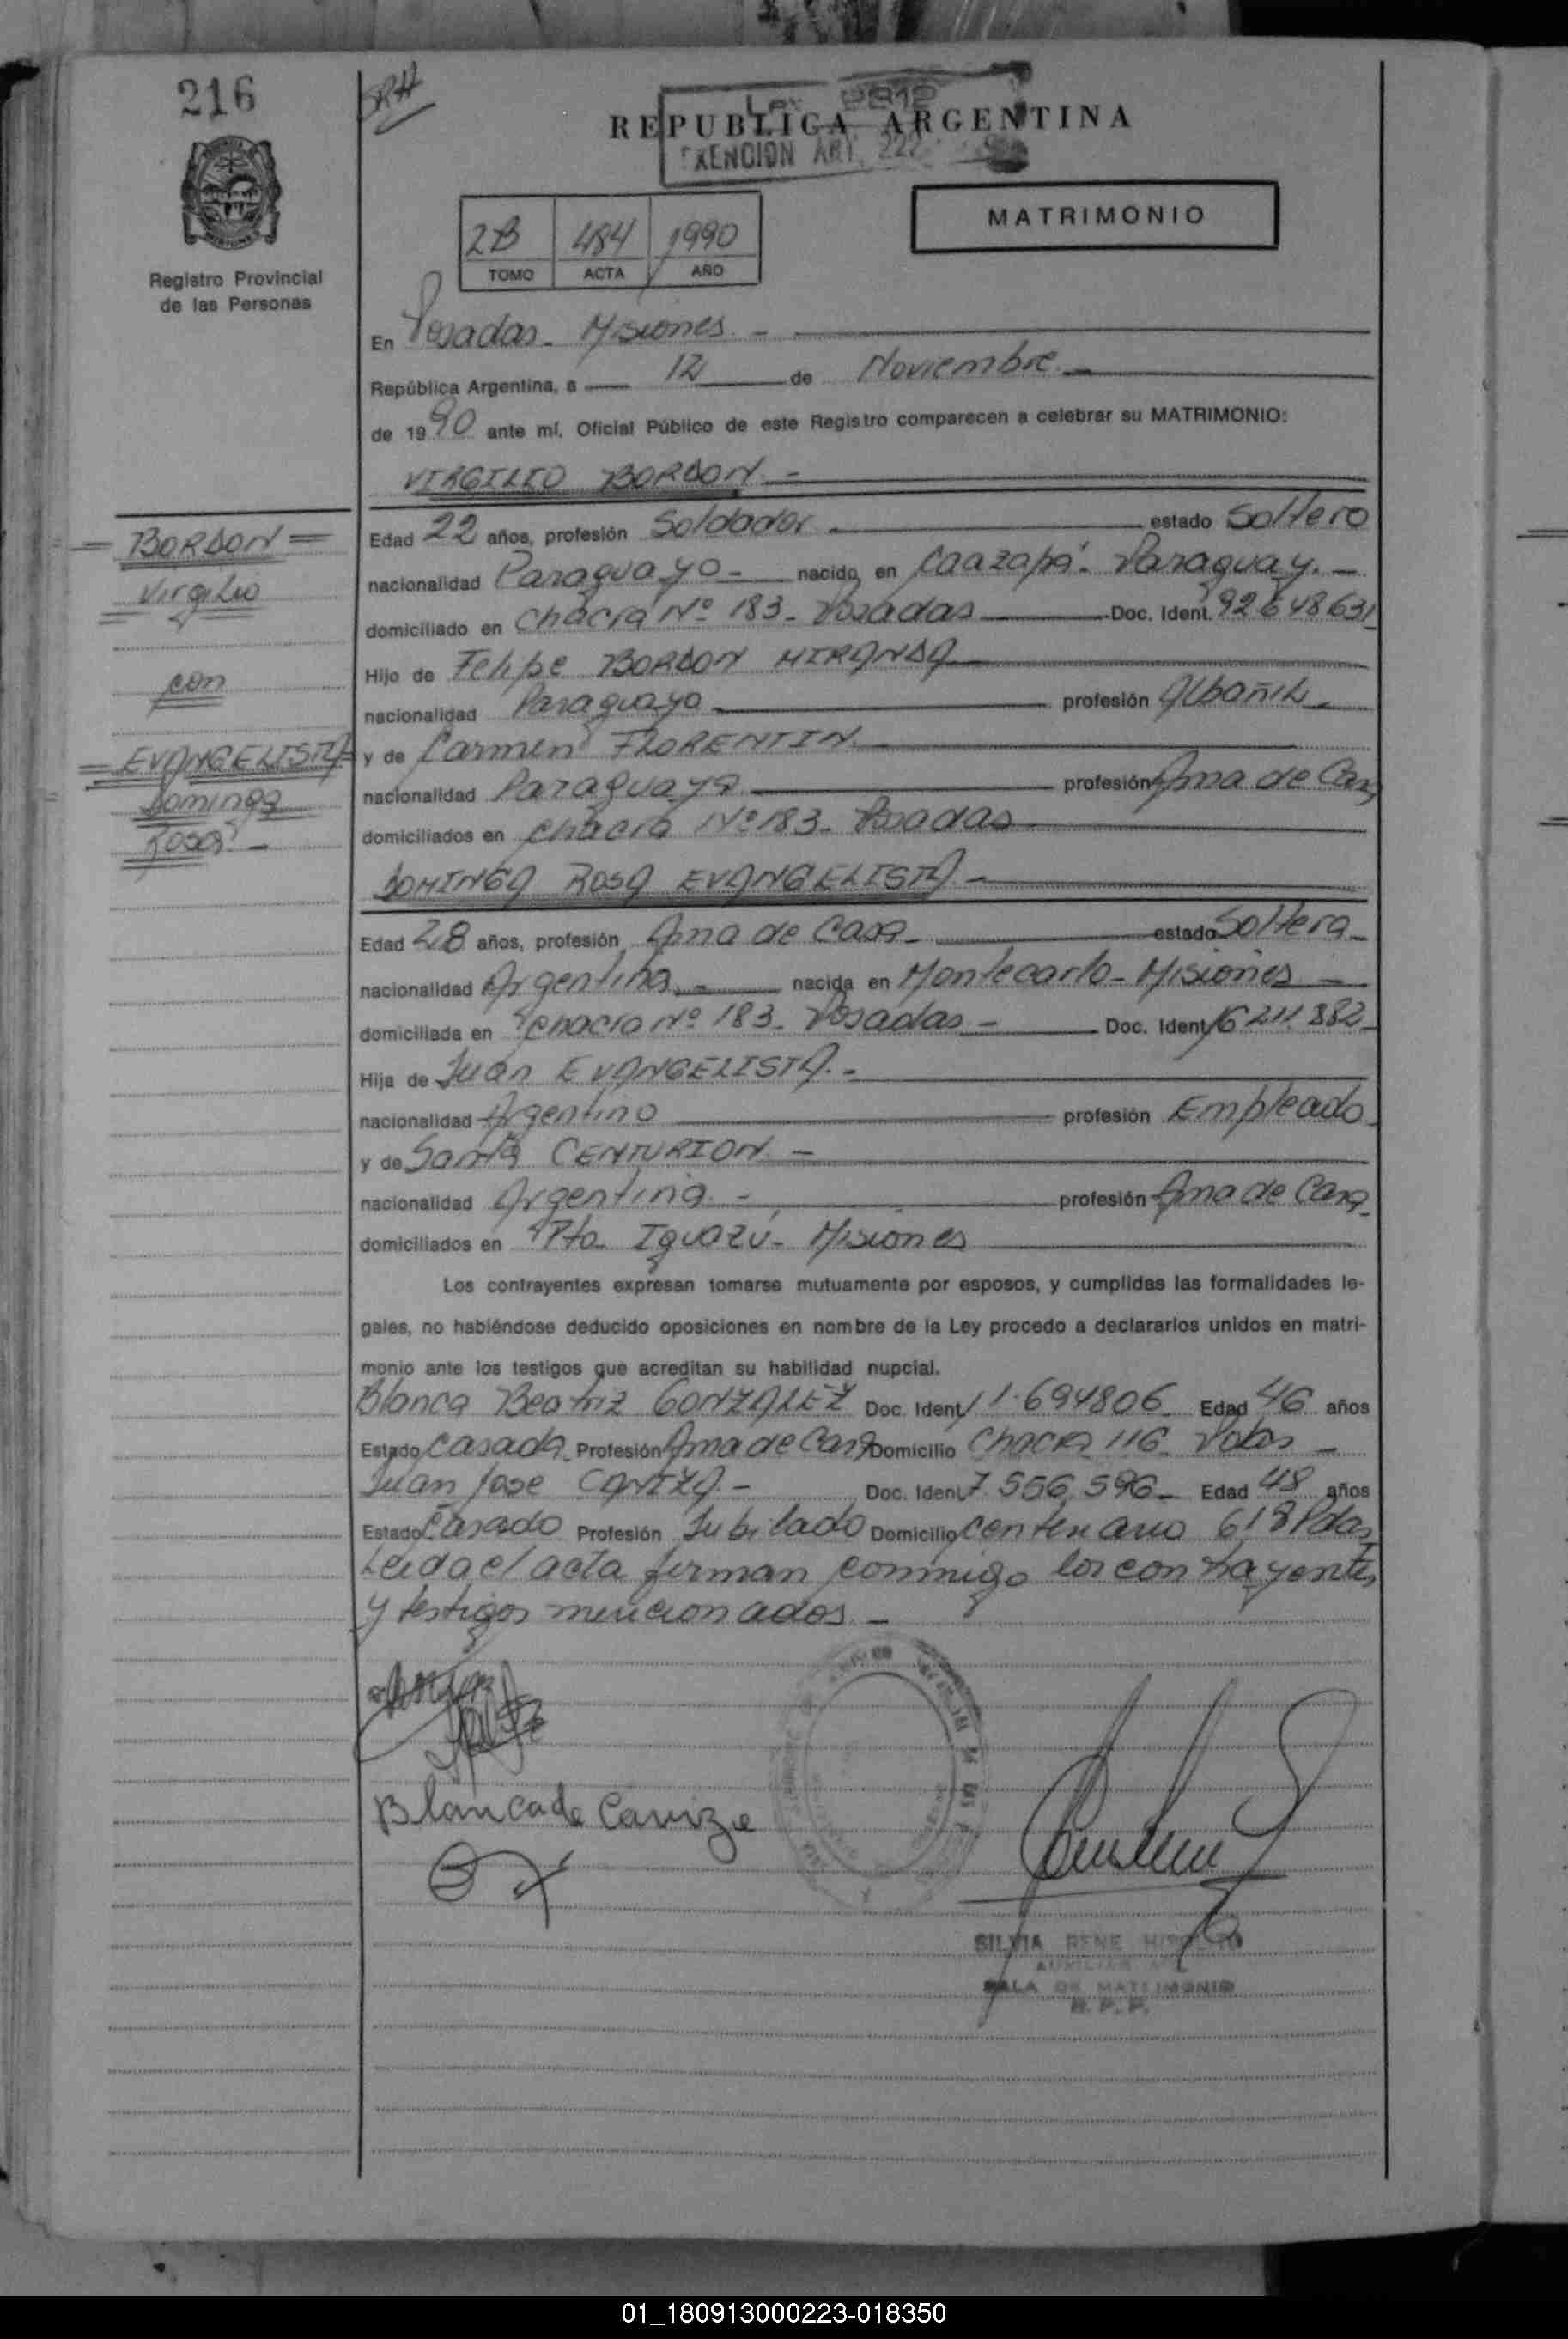 216
Registro Provincial
de las Personas
REPUBLICA ARGENTINA
EXENCION ART. 222
MATRIMONIO
2B 484 1990
TOMO ACTA AÑO
En Posadas - Misiones -
República Argentina, a 12 de Noviembre
de 1990 ante mí, Oficial Público de este Registro comparecen a celebrar su MATRIMONIO:
VIRGILIO BORDON -
BORDON
Virgilio
con
EVANGELISTA
Dominga
Rosa -
Edad 22 años, profesión Soldador estado Soltero
nacionalidad Paraguayo - nacido en Caazapá - Paraguay. -
domiciliado en Chacra Nº 183 - Posadas Doc. Ident. 92648631
Hijo de Felipe BORDON MIRANDA
nacionalidad Paraguayo profesión Albañil
y de Carmen FLORENTIN
nacionalidad Paraguaya profesión Ama de Casa
domiciliados en Chacra Nº 183 - Posadas
DOMINGA ROSA EVANGELISTA -
Edad 28 años, profesión Ama de Casa - estado Soltera -
nacionalidad Argentina. - nacida en Montecarlo - Misiones -
domiciliada en Chacra Nº 183 - Posadas - Doc. Ident. 16211882
Hija de Juan EVANGELISTA. -
nacionalidad Argentino profesión Empleado
y de Santa CENTURION. -
nacionalidad Argentina. - profesión Ama de Casa
domiciliados en Pto. Iguazú - Misiones
Los contrayentes expresan tomarse mutuamente por esposos, y cumplidas las formalidades le-
gales, no habiéndose deducido oposiciones en nombre de la Ley procedo a declararlos unidos en matri-
monio ante los testigos que acreditan su habilidad nupcial.
Blanca Beatriz GONZALEZ Doc. Ident. 1.694806 Edad 46 años
Estado Casada Profesión Ama de Casa Domicilio Chacra 116 Pdas -
Juan Jose CANIZA - Doc. Ident. 7.556.596 - Edad 48 años
Estado Casado Profesión Jubilado Domicilio Centenario 618 Pdas
Leida el acta firman conmigo los contrayentes
y testigos mencionados -
Blanca de Caniza
SILVIA RENE HIPOLITO
AUXILIAR
SALA DE MATRIMONIO
R. P. P.
01_180913000223-018350